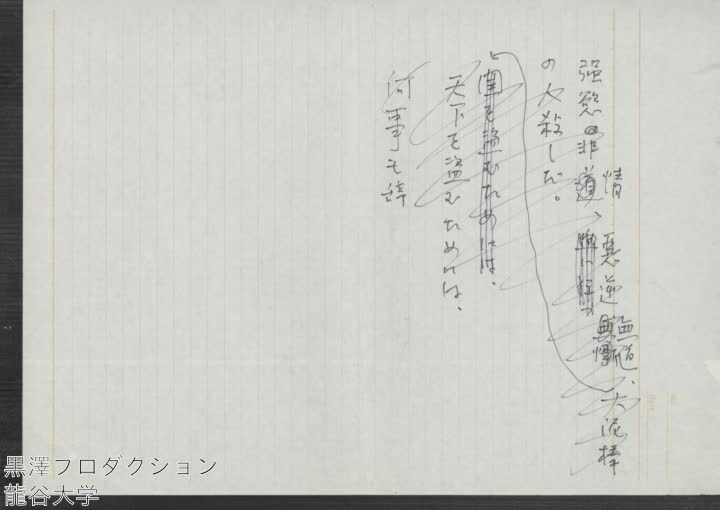 强慾非道、惡逆無道、大泥棒
情
の人殺しだ。
国を盗むためには、
天下を盗むためには、
何事も辞
黒澤プロダクション
龍谷大学